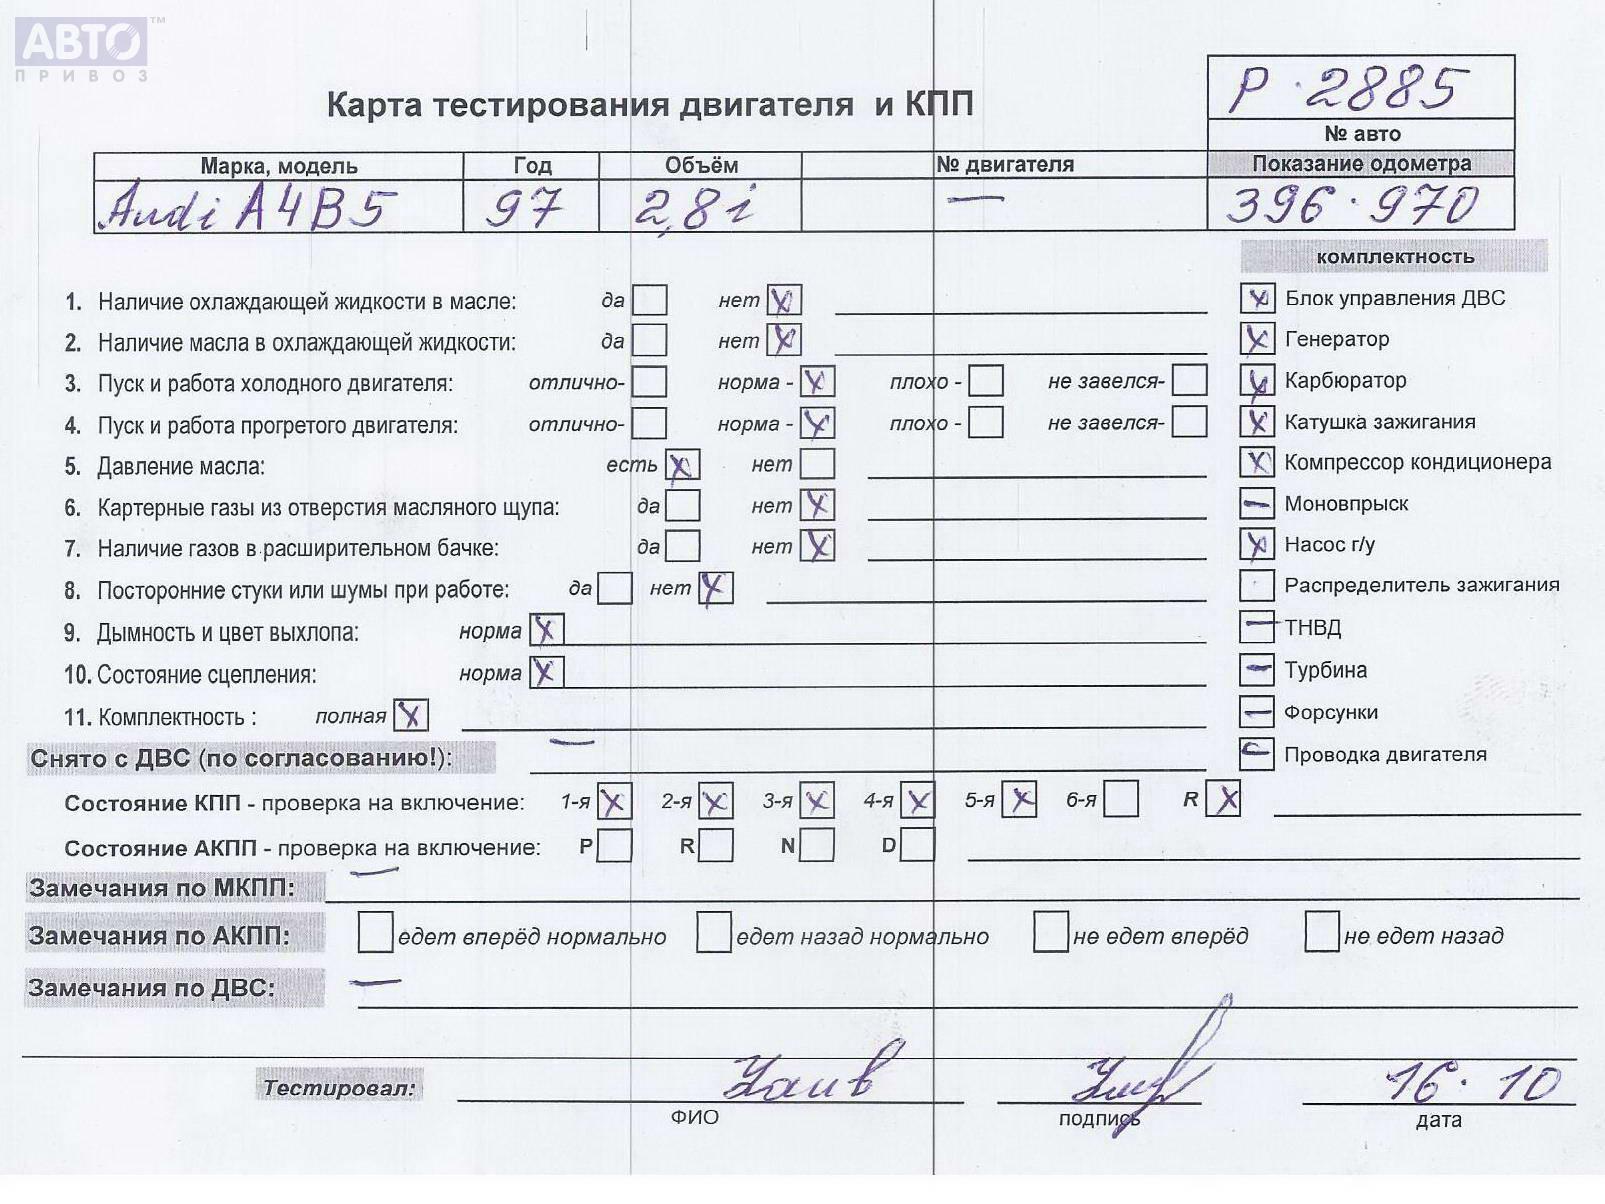 АВТО™
ПРИВОЗ
Р·2885
Карта тестирования двигателя и КПП
№ авто
Марка, модель Год Объём № двигателя Показание одометра
Audi A4B5 97 2,8i — 396·970
комплектность
1. Наличие охлаждающей жидкости в масле: да нет X X Блок управления ДВС
2. Наличие масла в охлаждающей жидкости: да нет X X Генератор
3. Пуск и работа холодного двигателя: отлично- норма - X плохо - не завелся- X Карбюратор
4. Пуск и работа прогретого двигателя: отлично- норма - X плохо - не завелся- X Катушка зажигания
5. Давление масла: есть X нет X Компрессор кондиционера
6. Картерные газы из отверстия масляного щупа: да нет X — Моновпрыск
7. Наличие газов в расширительном бачке: да нет X X Насос г/у
8. Посторонние стуки или шумы при работе: да нет X Распределитель зажигания
9. Дымность и цвет выхлопа: норма X — ТНВД
10. Состояние сцепления: норма X — Турбина
11. Комплектность : полная X — Форсунки
Снято с ДВС (по согласованию!): — — Проводка двигателя
Состояние КПП - проверка на включение: 1-я X 2-я X 3-я X 4-я X 5-я X 6-я R X
Состояние АКПП - проверка на включение: P R N D
Замечания по МКПП: —
Замечания по АКПП: едет вперёд нормально едет назад нормально не едет вперёд не едет назад
Замечания по ДВС: —
Тестировал: 16·10
ФИО подпись дата